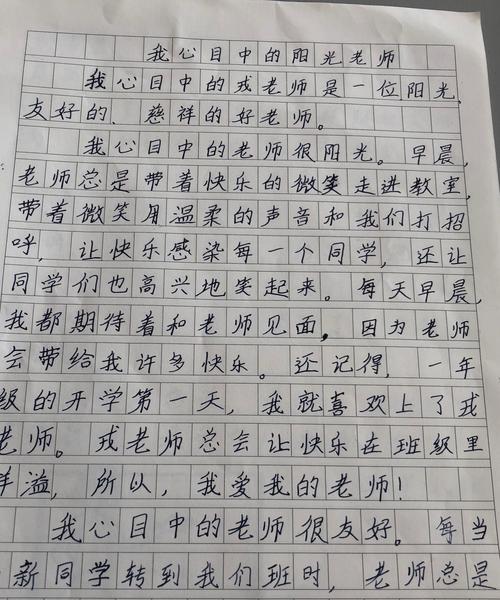 我心目中的阳光老师
我心目中的戎老师是一位阳光、
友好的、慈祥的好老师。
我心目中的老师很阳光。早晨,
老师总是带着快乐的微笑走进教室,
带着微笑用温柔的声音和我们打招
呼, 让快乐感染每一个同学, 还让
同学们也高兴地笑起来。每天早晨,
我都期待着和老师见面, 因为老师
会带给我许多快乐。还记得, 一年
级的开学第一天, 我就喜欢上了戎
老师。戎老师总会让快乐在班级里
洋溢, 所以, 我爱我的老师!
我心目中的老师很友好。每当
新同学转到我们班时, 老师总是